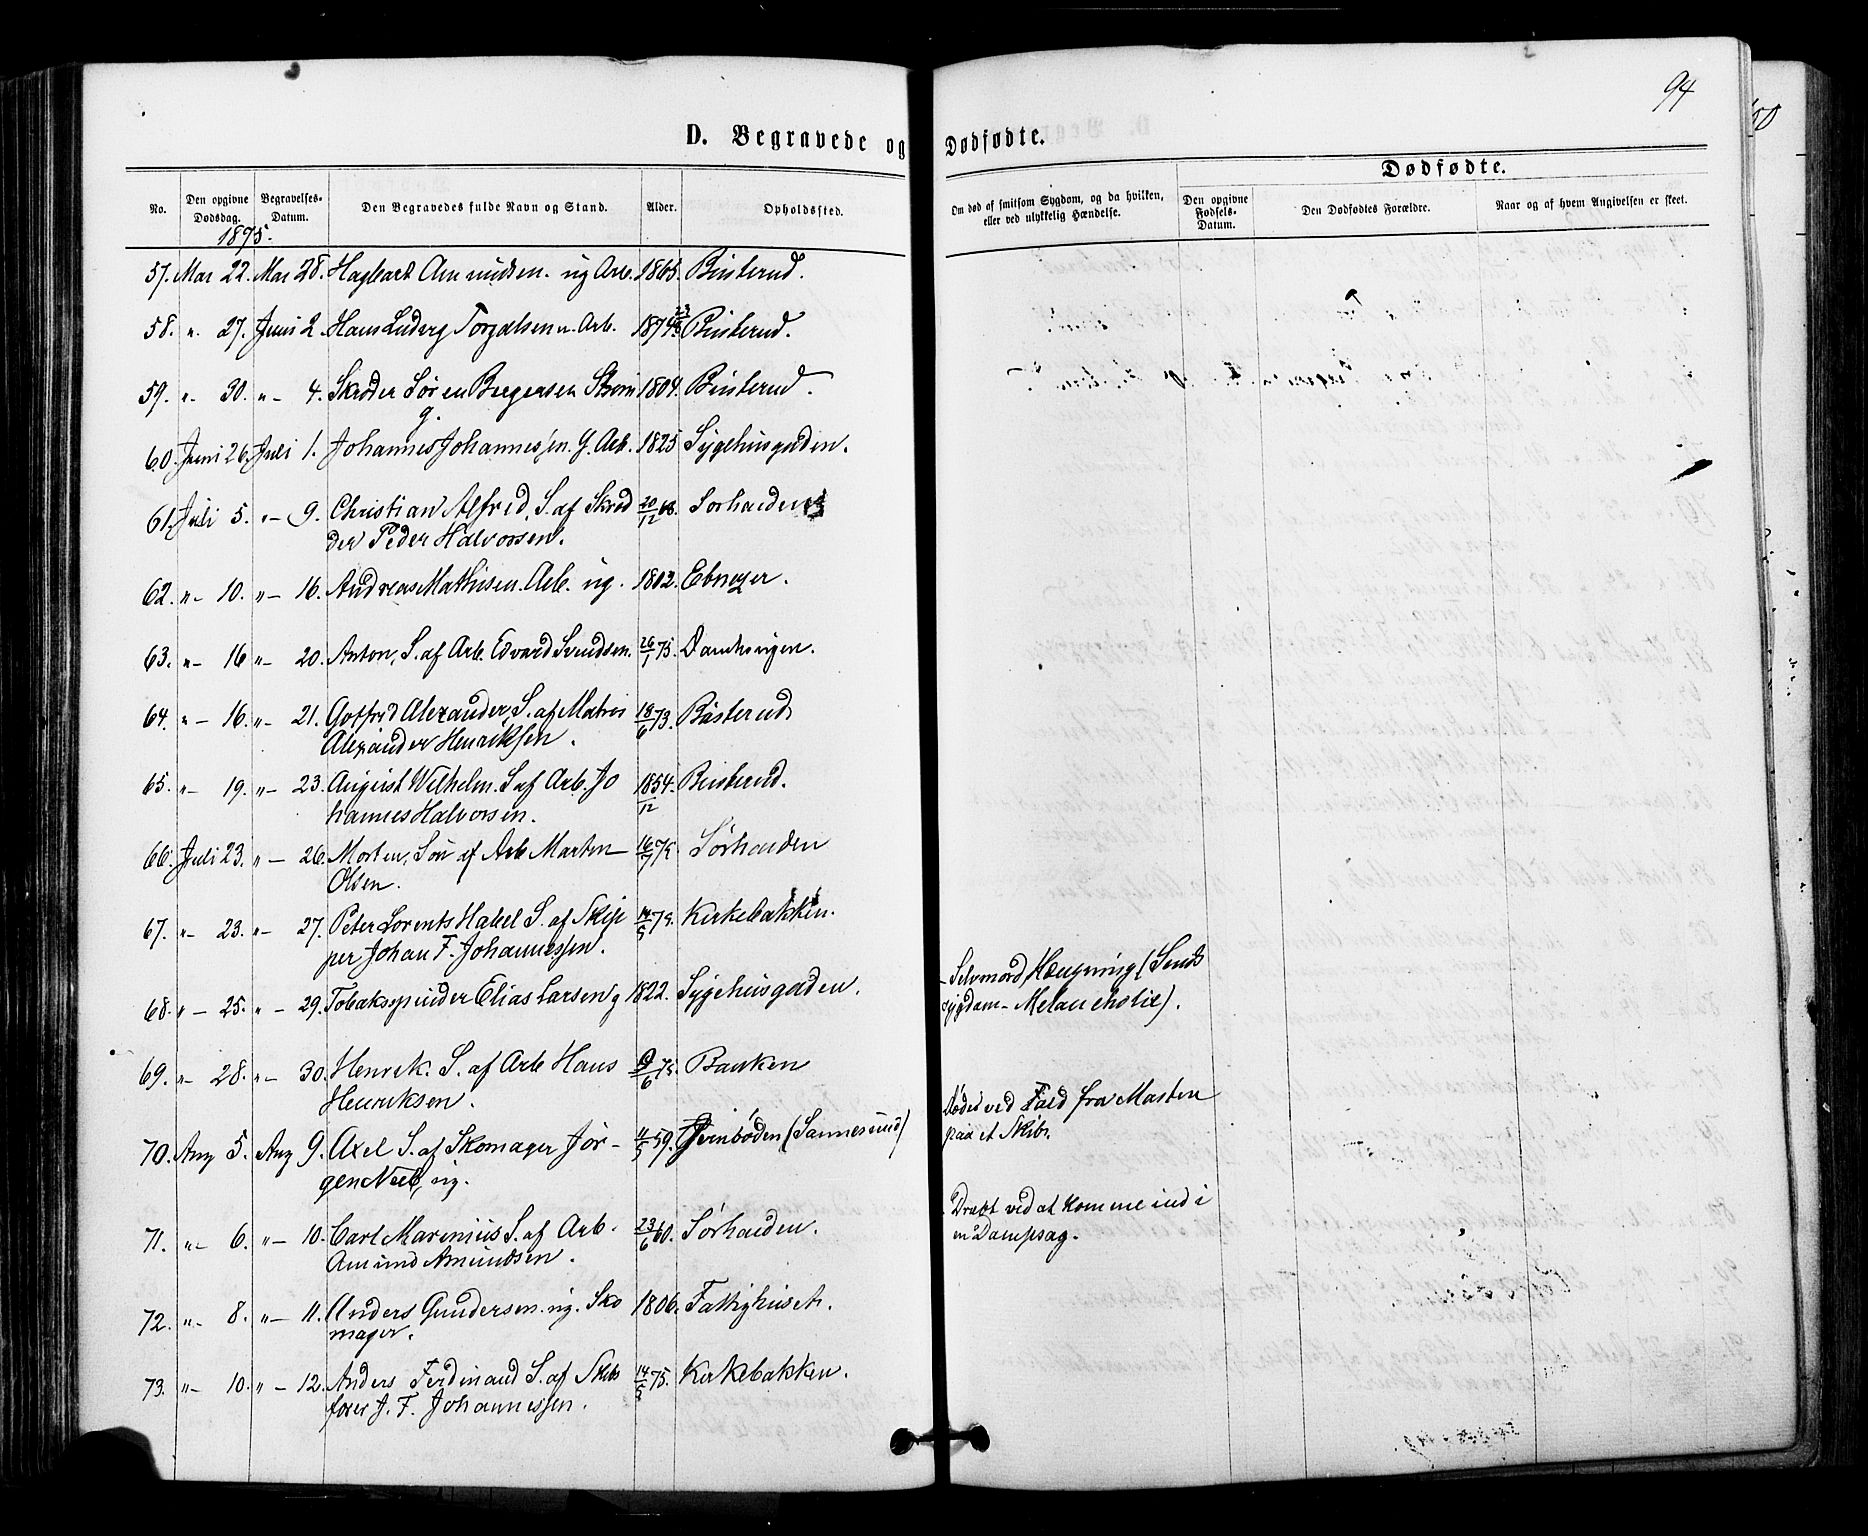 94
D. Begravede og Dødfødte.
Dødfødte.
No. Den opgivne Dødsdag. Begravelses-Datum. Den Begravedes fulde Navn og Stand. Alder. Opholdssted. Om død af smitsom Sygdom, og da hvilken, eller ved ulykkelig Hændelse. Den opgivne Fødsels-Datum. Den Dødfødtes Forældre. Naar og af hvem Angivelsen er skeet.
1875.
57. Mai 22. Mai 28. Hagbart Amundsen. ug Arb. 1865. Binterud.
58. " 27. Juni 2. Hans Ludvig Arb. 1874 Binterud.
59. " 30. " 4. Skræder Søren Børgersen Strøm 1804. Binterud.
g.
60. Juni 26. Juli 1. Johannes Johannessen. G. Arb. 1825 Sygehusgaden.
61. Juli 5. " 9. Christian Alfred, S. af Skræd 20/12 68. Sørhalden
der Peder Halvorsen.
62. " 10. " 16. Andreas Mathisen. Arb. ug. 1802. Ebneyer.
63. " 16 " 20. Anton, S. af Arb. Edvard Svendsen. 26/1 75. Damhvigen.
64. " 16. " 21. Gotfred Alexander, S. af Matros 18/6 73. Binterud
Alexander Henriksen.
65. " 19. " 23. August Wilhelm. S. af Arb. Jo 1854. Binterud.
hannes Halvorsen. 12
66. Juli 23. " 26. Morten, Søn af Arb Morten 16/7 75 Sørhalden
Olsen.
67. " 23. " 27. Peter Lorents Habel S. af Skip 14/5 75. Kirkebakken.
per Johan F. Johannessen.
68. " 25. " 29. Tobakspinder Elias Larsen g 1822. Sygehusgaden. Selvmord Hængning (Sinds
sygdom - Melancholie).
69. " 28. " 30. Henrik. S. af Arb Hans /6 75. Banken
Henriksen.
70. Aug 5. Aug 9. Axel S. af Skomager Jør- 11/5 59. (Sannesund) Døde ved Fald fra Masten
gen ug. paa et Skib.
71. " 6. " 10. Carl Marinius S. af Arb. 23/6 60. Sørhalden. Dræbt ved at komme ind i
Amund Amundsen. en Dampsag.
72. " 8. " 11. Anders Gundersen. ug. Sko 1806. Fattighuset.
mager.
73. " 10. " 12. Anders Ferdinand S. af Skibs 14/5 75. Kirkebakken.
fører J. F. Johannessen.